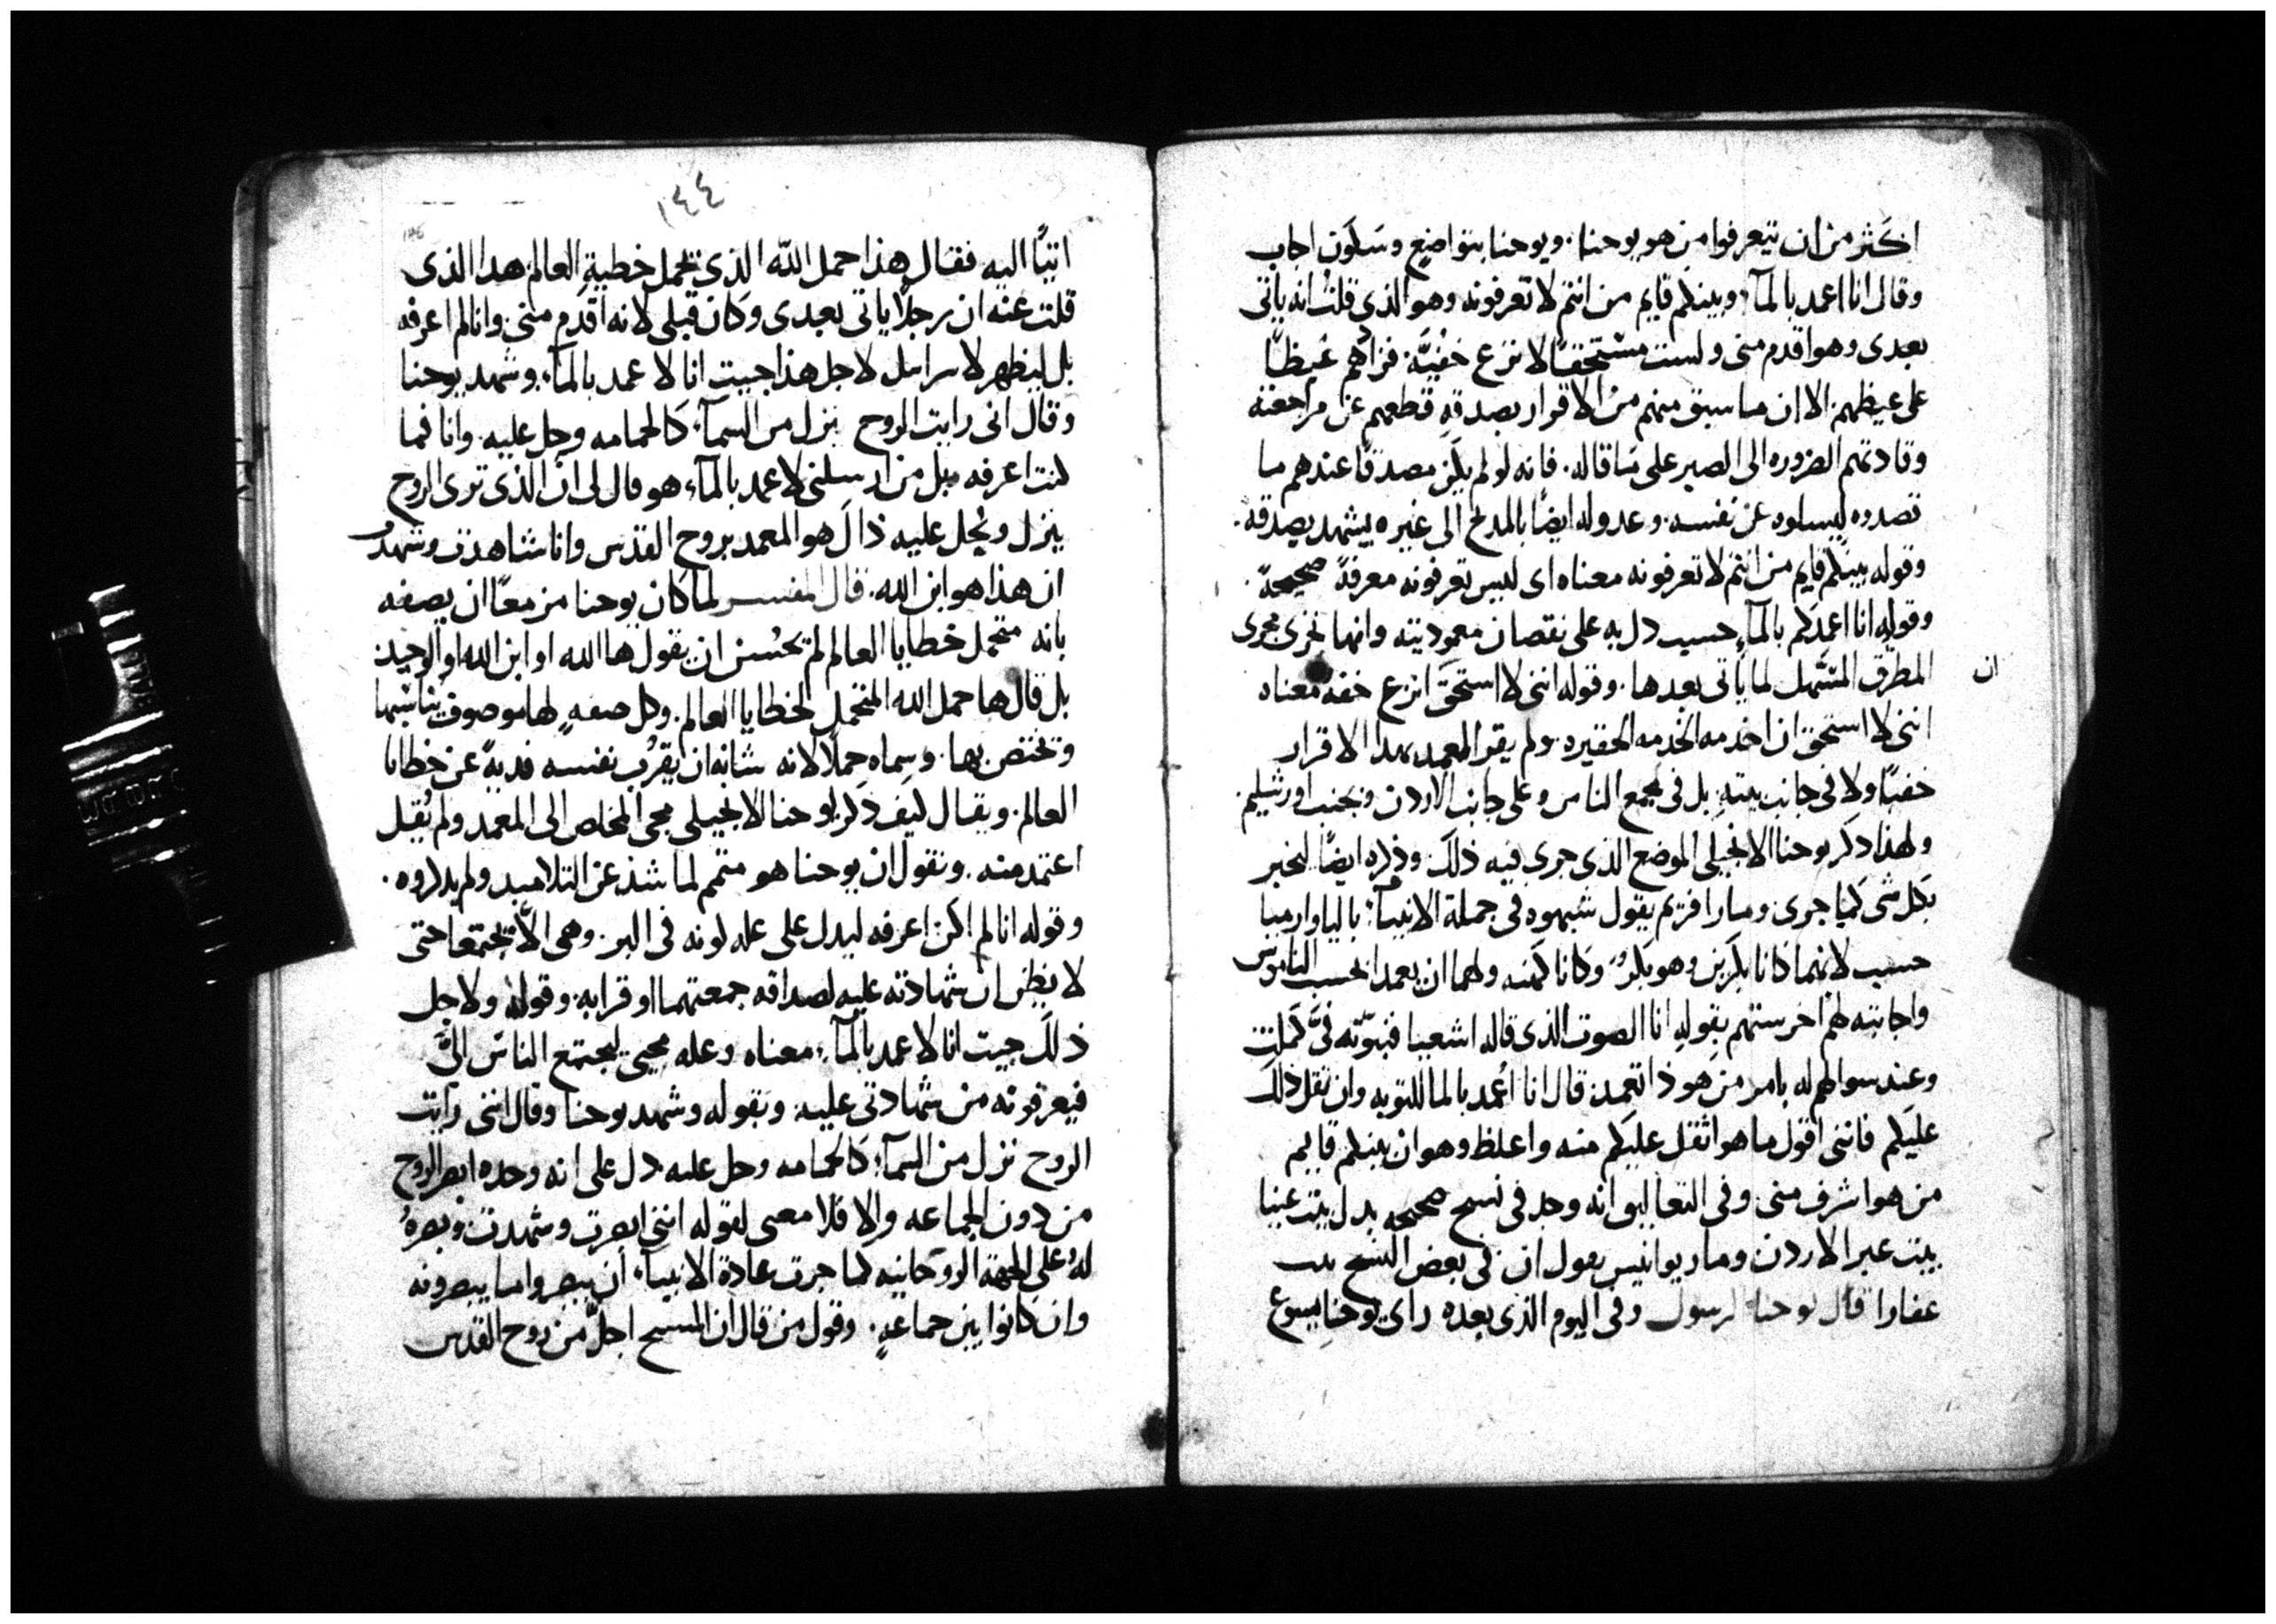 اكثر من ان يتعرفوا من هو يوحنا. ويوحنا بتواضع وسكون اجاب
وقال انا اعمد بالمآء وبينكم قايم من انتم لا تعرفونه وهو الذى قلت انه ياتى
بعدى وهو اقدم منى ولست مستحقا لانزع خفيه. فزادهم غيظا
على غيظهم. الا ان ما سبق منهم من الاقرار بصدقه قطعهم عن مراجعته
وقادتهم الضروره الى الصبر على ما قاله. فانه لو لم يكن مصدقا عندهم ما
قصدوه ليسلوه عن نفسه. وعدوله ايضا بالمدح الى غيره يشهد بصدقه.
وقوله بينكم قايم من انتم لا تعرفونه معناه اى ليس تعرفونه معرفة صحيحة.
وقوله انا اعمدكم بالمآء حسب دل به على نقصان معموديته وانها تجرى مجرى
المطرق المسهل لما ياتى بعدها. وقوله اننى لا استحق انزع خفه معناه
ان
اننى لا استحق ان اخدمه الخدمه الحقيره. ولم يقر المعمد بهدا الاقرار
خفيا ولا فى جانب بيته. بل فى مجمع الناس وعلى جانب الاردن وبجنب اورشليم.
ولهذا ذكر يوحنا الانجيلى الموضع الذى جرى فيه ذلك وذكره ايضا ليخبر
بكل شى كما جرى ومار افريم يقول شبهوه فى جملة الانبيآء باليا وارميا
حسب لانهما كانا بكرين وهو بكر. وكانا كهنه ولهما ان يعمدا بحسب الناموس
واجابته لهم اخرستهم بقوله انا الصوت الذى قاله اشعيا فنبوته فى كملت
وعند سوالهم له بامر من هوذا تعمد. قال انا اعمد بالما للتوبه وان ثقل ذلك
عليكم فاننى اقول ما هو اثقل عليكم منه واغلظ وهو ان بينكم قايم
من هو اشرف منى. وفى التعاليق انه وجد فى نسخ صحيحه بدل بيت عنيا
بيت عبر الاردن ومار يوانيس يقول ان فى بعض النسخ بيت
عفارا قال يوحنا الرسول وفى اليوم الذى بعده راى يوحنا يسوع
١٤٤
اتيا اليه فقال هذا حمل الله الذى يحمل خطية العالم هدا الذى
قلت عنه ان رجلا ياتى بعدى وكان قبلى لانه اقدم منى. وانا لم اعرفه
بل ليظهر لاسراىىل لاجل هذا جيت انا لاعمد بالمآء. وشهد يوحنا
وقال انى رايت الروح نزل من السمآء كالحمامه وحل عليه. وانا فما
كنت اعرفه بل من ارسلنى لاعمد بالمآء هو قال لى ان الذى ترى الروح
ينزل ويحل عليه ذاك هو المعمد بروح القدس وانا شاهدت وشهدت
ان هذا هو ابن الله. قال المفسر لما كان يوحنا مزمعا ان يصفه
بانه متحمل خطايا العالم لم يحسن ان يقول ها الله او ابن الله او الوحيد.
بل قال ها حمل الله المتحمل لخطايا العالم. وكل صفه لها موصوف يناسبها
وتختص بها. وسماه حملا لانه شانه ان يقرب نفسه فدية عن خطايا
العالم. ويقال كيف ذكر يوحنا الانجيلى مجى المخلص الى المعمد ولم يقل
اعتمد منه. ونقول ان يوحنا هو متمم لما شذ عن التلاميد ولم يذكروه.
وقوله انا لم اكن اعرفه ليدل على عله كونه فى البر. وهى الا يجتمعا حتى
لا يظن ان شهادته عليه لصداقه جمعتهما او قرابه. وقوله ولاجل
ذلك جيت انا لاعمد بالمآء معناه وعله مجيى ليجتمع الناس الى
فيعرفونه من شهادتى عليه. وبقوله وشهد يوحنا وقال اننى رايت
الروح نزل من السمآء كالحمامه وحل عليه دل على انه وحده ابصر الروح
من دون الجماعه والا فلا معنى لقوله اننى ابصرت وشهدت وبصره
له على الجهة الروحانيه كما جرت عادة الانبيآء ان يبصروا ما يبصرونه
وان كانوا بين جماعه. وقول من قال ان المسيح اجل من روح القدس